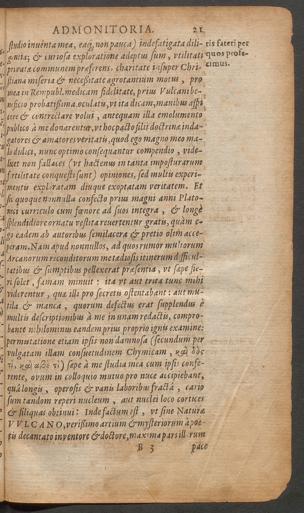 ADMONITORIA. 21
studio inventa mea, eaq́; non pauca) indefatigata dili-
gentia; & curiosa exploratione adeptus sum, utilitati
privatæ communem præferens. charitate insuper Chri-
stiana miseria & necessitate ægrotantium motus, pro
mea in Rempubl. medicam fidelitate, prius Vulcani be-
neficio probatissima. oculatu, vt ita dicam, manibus aspi
cere & contrectare volui, antequam illa emolumento
publico à me donarentur, vt hoc pacto filii doctrinæ inda-
gatores & amatores veritatis, quod ego magno meo ma-
lo didici, nunc optimo consequantur compendio, vide-
licet non fallaces (vt hactenus in tanta imposturarum
fertilitate conquesti sunt) opiniones, sed multiu experi-
mento exploratam diuque exoptatam veritatem. Et
sic quoque nonnulla confecto prius magni anni Plato-
nici curriculo cum fœnore ad suos integra, & longè
splendidiore ornatu vestita revertentur gratis, quàm e-
go eadem ab autoribus semilacera & pretio olim acce-
peram. Nam apud nonnullos, ad quos rumor multorum
Arcanorum reconditorum me tadiosis itinerum difficul-
tatibus & sumptibus pellexerat præsentia, vt sæpe fie-
ri solet, famam minuit: ita vt aut trita tunc mihi
viderentur, quæ illi pro secretis ostentabant: aut mu-
tila & manca, quorum defectus erat supplendus è
multis descriptionibus à me in unum redactis, compro-
bante nihilominus eandem prius proprio ignis examine:
permutatione etiam ipsis non damnosa (secundum per
vulgatam illam consuetudinem Chymicam, καὶ δός
τι, καὶ λάβε τι) sæpe à me studia mea cum ipsis confe-
rente, ovum in colloquio mutuo pro nuce accipiebant,
qua longis, operosis & vanis laboribus fracta, cario
sum tandem reperi nucleum, aut nuclei loco cortices
& siliquas obtinui: Inde factum est, vt sine Naturæ
VULCANO, verissimo artium & mysteriorum à poë-
tis decantato inventore & doctore, maxima pars ill rum
B 3 pace
ris fateri per
quos profe-
cimus.